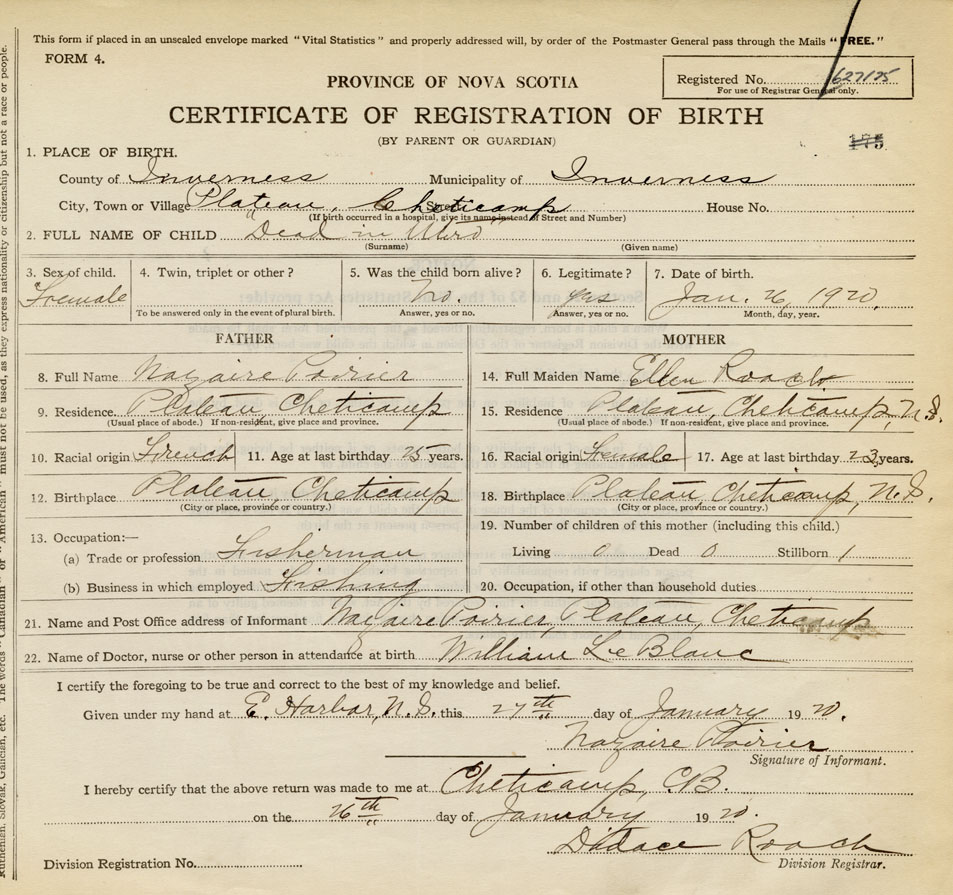 This form if placed in an unsealed envelope marked "Vital Statistics" and properly addressed will, by order of the Postmaster General pass through the Mails "FREE."
FORM 4.
PROVINCE OF NOVA SCOTIA
Registered No. 627175
For use of Registrar General only.
CERTIFICATE OF REGISTRATION OF BIRTH
(BY PARENT OR GUARDIAN)
175
1. PLACE OF BIRTH.
County of Inverness Municipality of Inverness
City, Town or Village Plateau, Cheticamp Street House No.
(If birth occurred in a hospital, give its name instead of Street and Number)
2. FULL NAME OF CHILD "Dead in Utero"
(Surname) (Given name)
3. Sex of child. 4. Twin, triplet or other? 5. Was the child born alive? 6. Legitimate? 7. Date of birth.
Female No. yes Jan. 26, 1920.
To be answered only in the event of plural birth. Answer, yes or no. Answer, yes or no. Month, day, year.
FATHER MOTHER
8. Full Name Nazaire Poirier 14. Full Maiden Name Ellen Roach
9. Residence Plateau, Cheticamp 15. Residence Plateau, Cheticamp, N.S.
(Usual place of abode.) If non-resident, give place and province. (Usual place of abode.) If non-resident, give place and province.
10. Racial origin French 11. Age at last birthday 25 years. 16. Racial origin Female 17. Age at last birthday 23 years.
12. Birthplace Plateau, Cheticamp 18. Birthplace Plateau, Cheticamp, N.S.
(City or place, province or country.) (City or place, province or country.)
13. Occupation:— 19. Number of children of this mother (including this child.)
(a) Trade or profession Fisherman Living 0 Dead 0 Stillborn 1
(b) Business in which employed Fishing 20. Occupation, if other than household duties
21. Name and Post Office address of Informant Nazaire Poirier, Plateau, Cheticamp
22. Name of Doctor, nurse or other person in attendance at birth William LeBlanc
I certify the foregoing to be true and correct to the best of my knowledge and belief.
Given under my hand at E. Harbor, N.S. this 27th day of January 1920.
Nazaire Poirier
Signature of Informant.
I hereby certify that the above return was made to me at Cheticamp, C.B.
on the 26th day of January 1920.
Didace Roach
Division Registrar.
Division Registration No.
Ruthenian, Slovak, Galician, etc. The words "Canadian" or "American" must not be used, as they express nationality or citizenship but not a race or people.